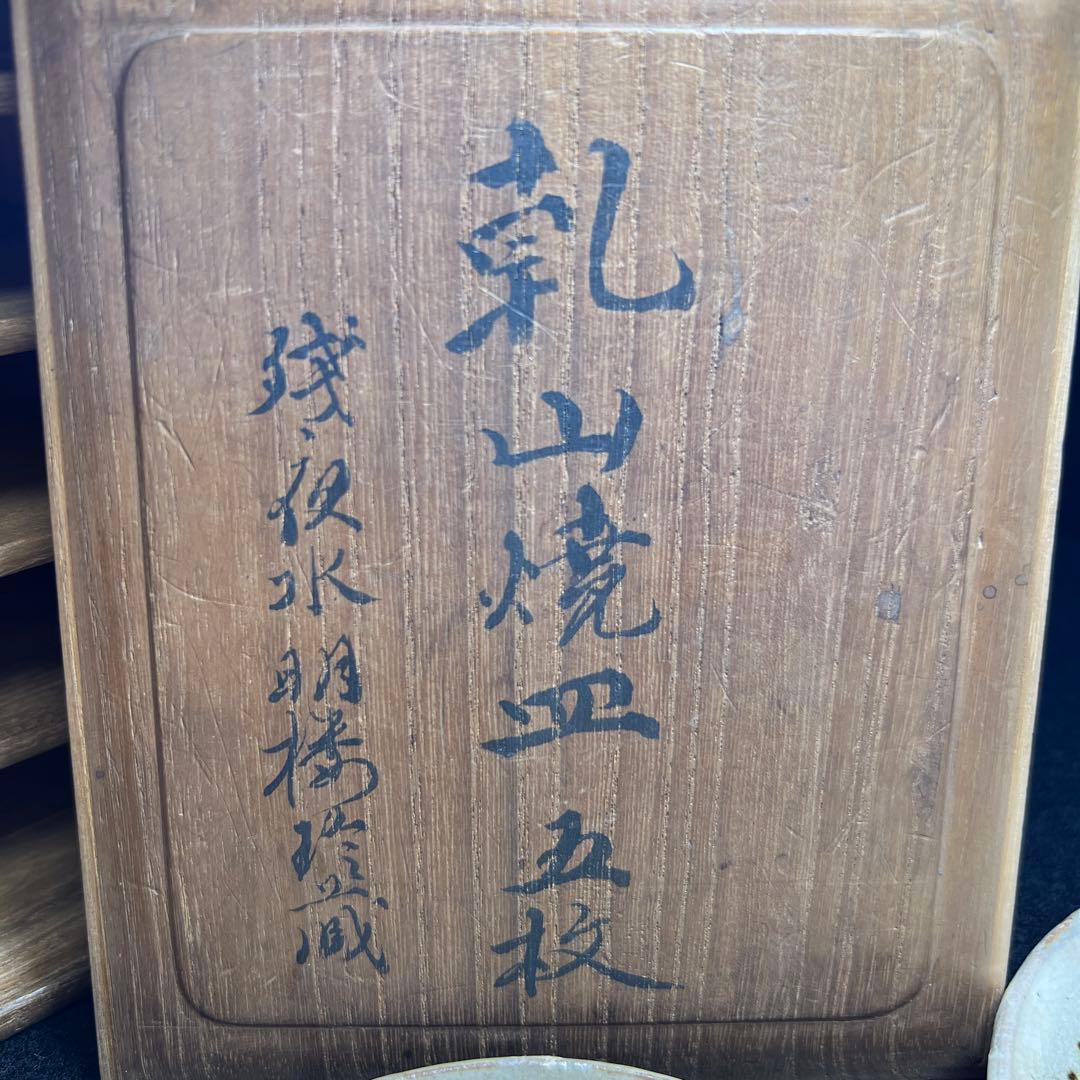 乾山焼皿 五枚
残夜水明楼珍蔵